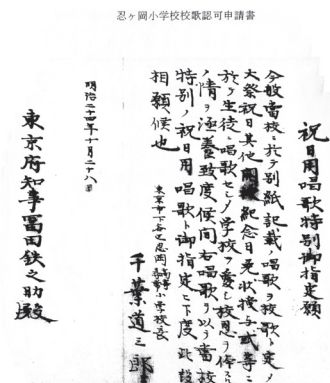 忍ヶ岡小学校校歌認可申請書
祝日用唱歌特別御指定願
今般當校ニ於テ別紙記載ノ唱歌ヲ校歌ト定メ
大祭祝日其他紀念日免状授与式等ニ
於テ生徒ニ唱歌セシメ学校ヲ愛シ校恩ヲ
ノ情ヲ涵養致度候間右唱歌ヲ以テ當校
特別ノ祝日用唱歌ト御指定下度此段
相願候也
東京市下谷区忍岡高等尋常小学校長
千葉道三郎
明治二十四年十月二十八日
東京府知事富田鉄之助殿